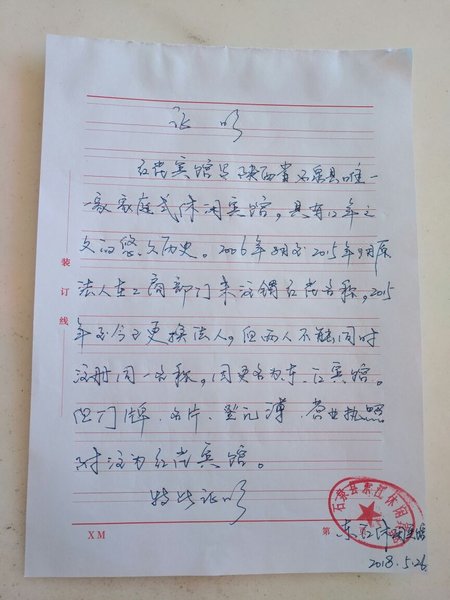 证明
红岩宾馆是陕西省石泉县唯一
一家家庭式休闲宾馆，具有12年之
久的悠久历史。2006年8月至2015年9月原
法人在工商部门未注销红岩名称，2015
年至今已更换法人，但两人不能同时
注册同一名称，因更名为东江宾馆。
但门牌、名片、登记簿、营业执照
附注为红岩宾馆。
特此证明
装
订
线
石泉县东江休闲宾馆
XM
第
东江休闲宾馆
2018.5.26